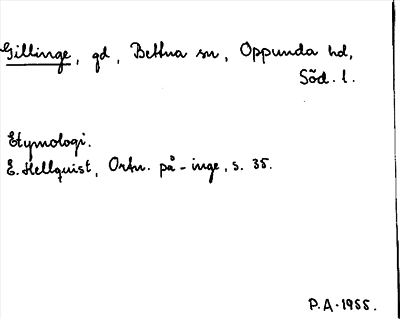 Gillinge, gd, Bettna sn, Oppunda hd,
Söd. l.
Etymologi.
E. Hellquist, Ortn. på -inge, s. 35.
P.A. 1955.